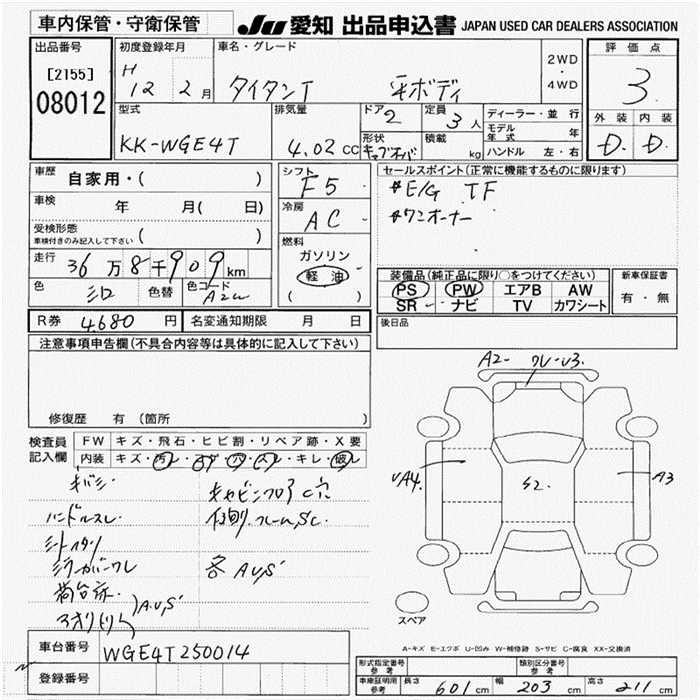 車内保管・守衛保管
JU 愛知 出品申込書 JAPAN USED CAR DEALERS ASSOCIATION
出品番号
[2155]
08012
初度登録年月
H 12 2月
車名・グレード
タイタンT 平ボディ
2WD
・
4WD
評価点
3
外装 内装
D D
型式
KK-WGE4T
排気量
4.02 cc
ドア
2
定員
3人
形状
積載
kg
ディーラー・並行
モデル年式 年
ハンドル 左・右
車歴
自家用・( )
車検
年 月( 日)
受検形態
車検付きのみ記入して下さい
( )
走行
36万8千909km
色
シロ
色替
色コード
A2W
シフト
F5
冷房
AC
燃料
ガソリン
軽油
( )
セールスポイント(正常に機能するものに限ります)
#E/G TF
#ワンオーナー
装備品(純正品に限り○をつけてください)
PS PW エアB AW
SR ナビ TV カワシート
新車保証書
有・無
R券 4,680円
名変通知期限 月 日
後日品
注意事項申告欄(不具合内容等は具体的に記入して下さい)
修復歴 有(箇所
検査員記入欄
FW キズ・飛石・ヒビ割・リペア跡・X要
内装 キズ・汚レ・コゲ・穴・スレ・キレ・破レ
ハンドルスレ
キャビンフロアC穴
各AU,S
荷台床
A,U,S
A2- ワレ-U3
UA4
S2
A3
スペア
A-キズ E-エクボ U-凹み W-補修跡 S-サビ C-腐食 XX-交換済
車台番号
WGE4T250014
登録番号
形式指定番号
参考
類別区分番号
参考
車庫証明用
参考
長さ 601cm 幅 203cm 高さ 211cm